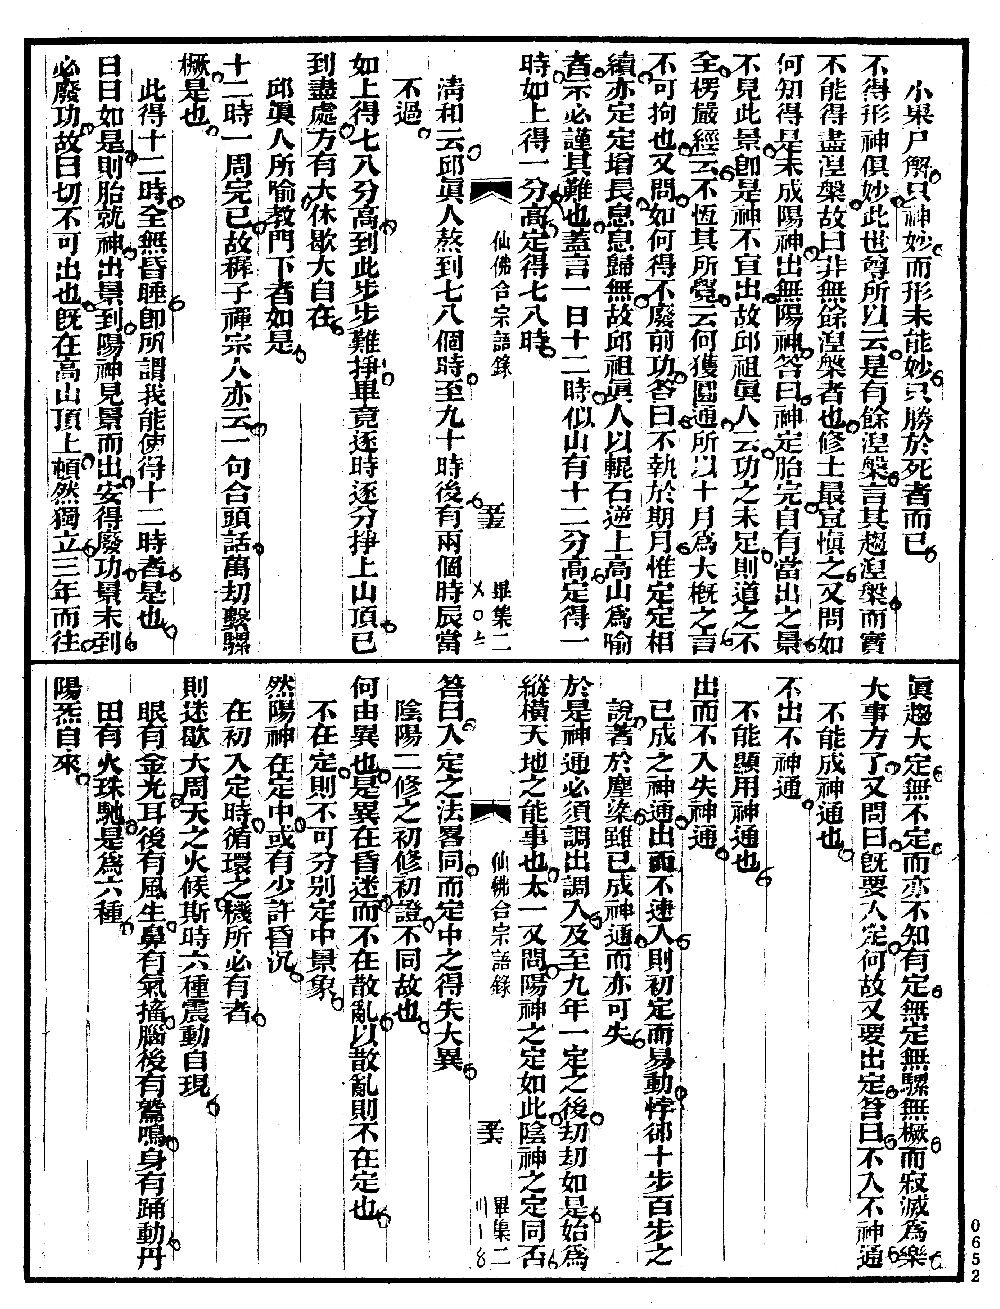 小果尸解只神妙而形未能妙只勝於死者而已
不得形神俱妙此世尊所以云是有餘湼槃言其趨湼槃而實
不能得盡湼槃故曰非無餘湼槃者也修士最宜慎之又問如
何知得是未成陽神出無陽神答曰神定胎完自有當出之景
不見此景卽是神不宜出故邱祖眞人云功之未足則道之不
全楞嚴經云不恆其所覺云何獲圓通所以十月爲大槪之言
不可拘也又問如何得不廢前功答曰不執於期月惟定定相
續亦定定增長息息歸無故邱祖眞人以輥石逆上高山爲喻
者示必謹其難也蓋言一日十二時似山有十二分高定得一
時如上得一分高定得七八時
仙佛合宗語錄 畢集二
淸和云邱眞人熬到七八個時至九十時後有兩個時辰當
不過
如上得七八分高到此步步難掙畢竟逐時逐分掙上山頂已
到盡處方有大休歇大自在
邱眞人所喻教門下者如是
十二時一周完已故稺子禪宗人亦云一句合頭話萬劫繫驢
橛是也
此得十二時全無昏睡卽所謂我能使得十二時者是也
日日如是則胎就神出景到陽神見景而出安得廢功景未到
必廢功故曰切不可出也旣在高山頂上頓然獨立三年而往
眞趨大定無不定而亦不知有定無定無驢無橛而寂滅爲樂
大事方了又問曰旣要入定何故又要出定答曰不入不神通
不能成神通也
不出不神通
不能顯用神通也
出而不入失神通
已成之神通出而不速入則初定而易動悖却十步百步之
說著於塵染雖已成神通而亦可失
於是神通必須調出調入及至九年一定之後刧刧如是始爲
縱橫天地之能事也太一又問陽神之定如此陰神之定同否
仙佛合宗語錄 畢集二
答曰入定之法畧同而定中之得失大異
陰陽二修之初修初證不同故也
何由異也是異在昏迷而不在散亂以散亂則不在定也
不在定則不可分别定中景象
然陽神在定中或有少許昏沉
在初入定時循環之機所必有者
則迷歇大周天之火候斯時六種震動自現
眼有金光耳後有風生鼻有氣搐腦後有鷲鳴身有踊動丹
田有火珠馳是爲六種
陽炁自來
0652